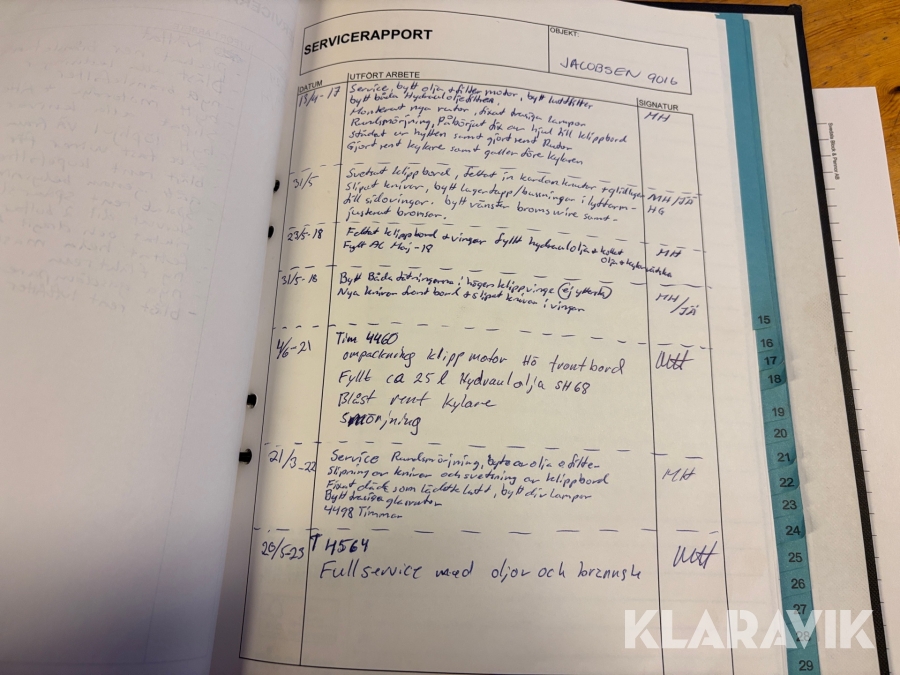 SERVICERAPPORT
OBJEKT:
JACOBSEN 9016
DATUM
UTFÖRT ARBETE
SIGNATUR
19/4-17
Service, bytt olja + filter motor, bytt luftfilter
MH
bytt båda Hydrauloljefiltren.
Monterat nya rutor, fixat trasiga lampor
Rundsmörjning, Påbörjat fix av hjul till klippbord
städat ur hytten samt gjort rent Rutor
Gjort rent kylare samt galler före kylaren
31/5
Svetsat klippbord, fettat in kardanknutar +
MH/JÄ
Slipat knivar, bytt lagertapp/bussningar i lyftarm-
HG
till sidovingar. bytt vänster bromswire samt-
justerat bromsar.
23/5-18
Fettat klippbord + vingar fyllt hydraulolja + kollat
MH
olja + kylarvätska
Fyllt AC Maj-18
31/5-18
Bytt Båda tätningarna i höger klippvinge (ej yttersta)
MH/JÄ
Nya knivar front bord + slipat knivar i vingar
4/6-21
Tim 4460
MH
ompackning klipp motor Hö frontbord
Fyllt ca 25 l Hydraulolja SH68
Blåst rent kylare
Smörjning
21/3-22
Service Rundsmörjning, byte av olja + filter
MH
slipning av knivar och svetsning av klippbord
Fixat däck som läckte luft, bytt div lampor
Bytt trasiga glasrutor
4498 Timmar
26/5-23
T 4564
MH
Fullservice med oljor och
15
16
17
18
19
20
21
22
23
24
25
26
27
28
29
KLARAVIK